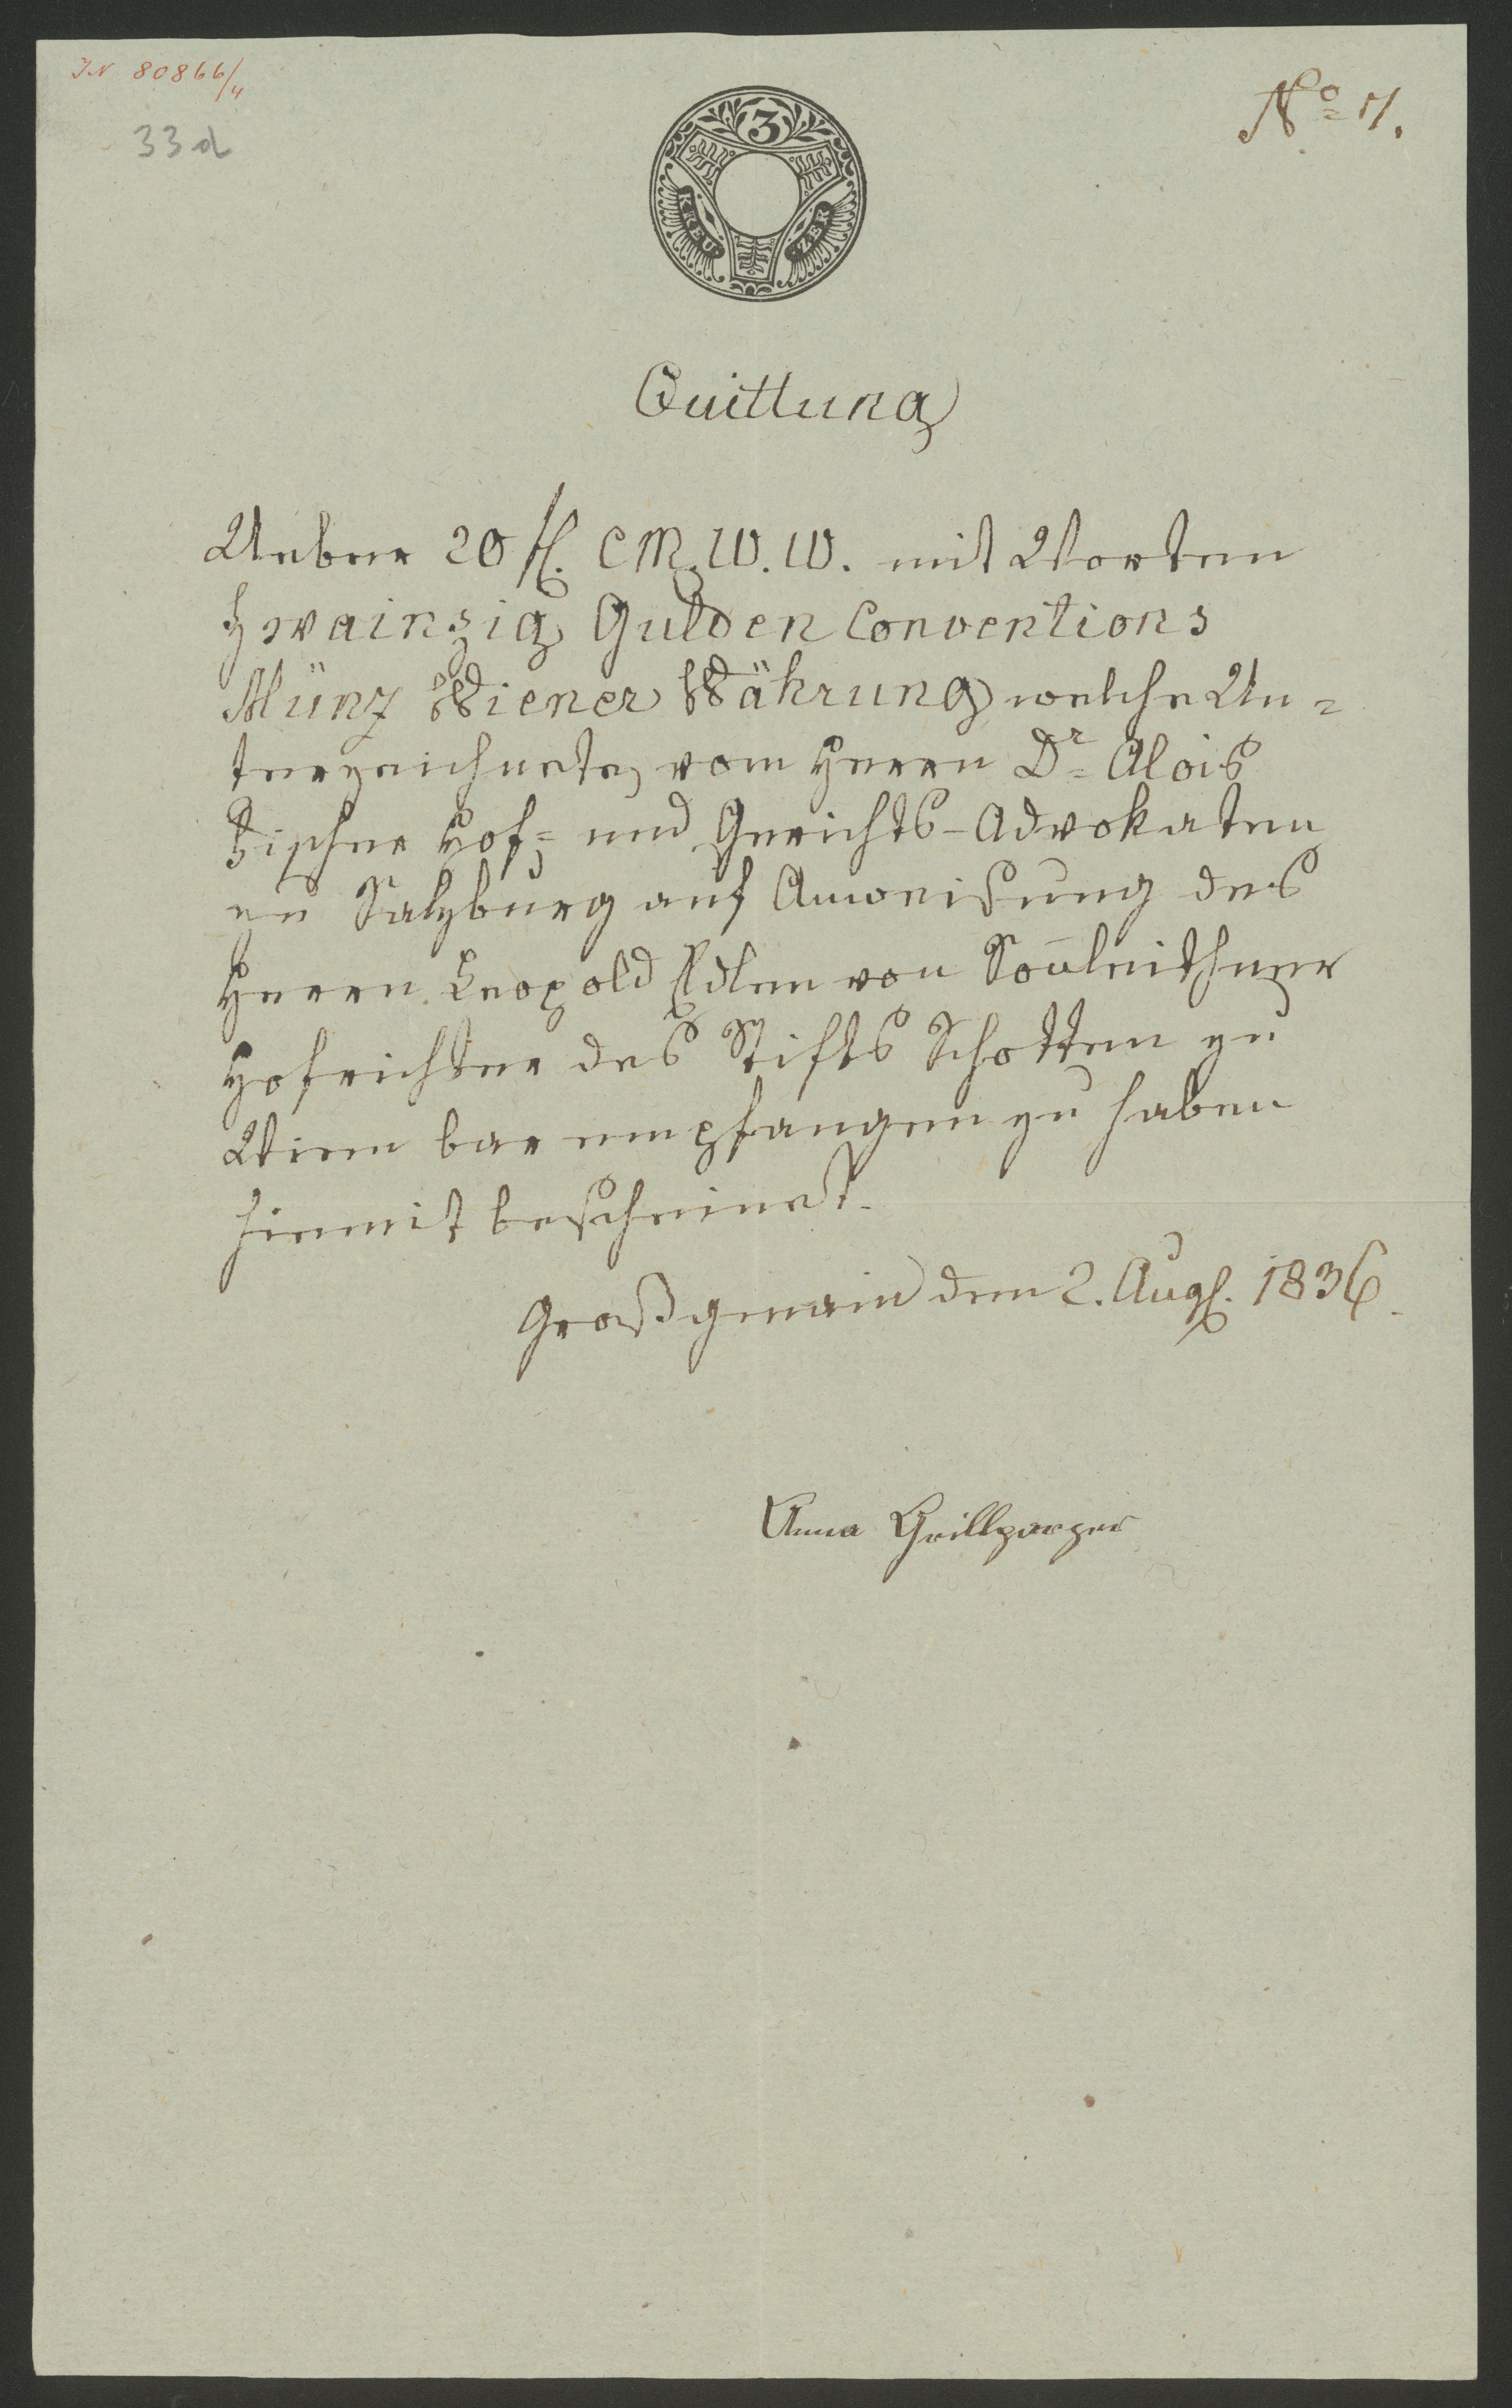 IN 80866/4
33d
3
KREU
ZER
Quittung
Ueber 20 fl. C M. W. W. mit Worten
Zwainzig Gulden Conventions
Münz Wiener Währung welche Un=
terzeichnete vom Herrn Dr= Alois
Fischer Hof= und Gerichts-Advokaten
zu Salzburg auf Anweisung des
Herrn Leopold Edlen von Son̄leithner
Hofrichter des Stifts Schotten zu
Wien bar empfangen zu haben
hiemit bescheinet.
Großgmain den 2. Augs. 1836.
Anna Grillparzer